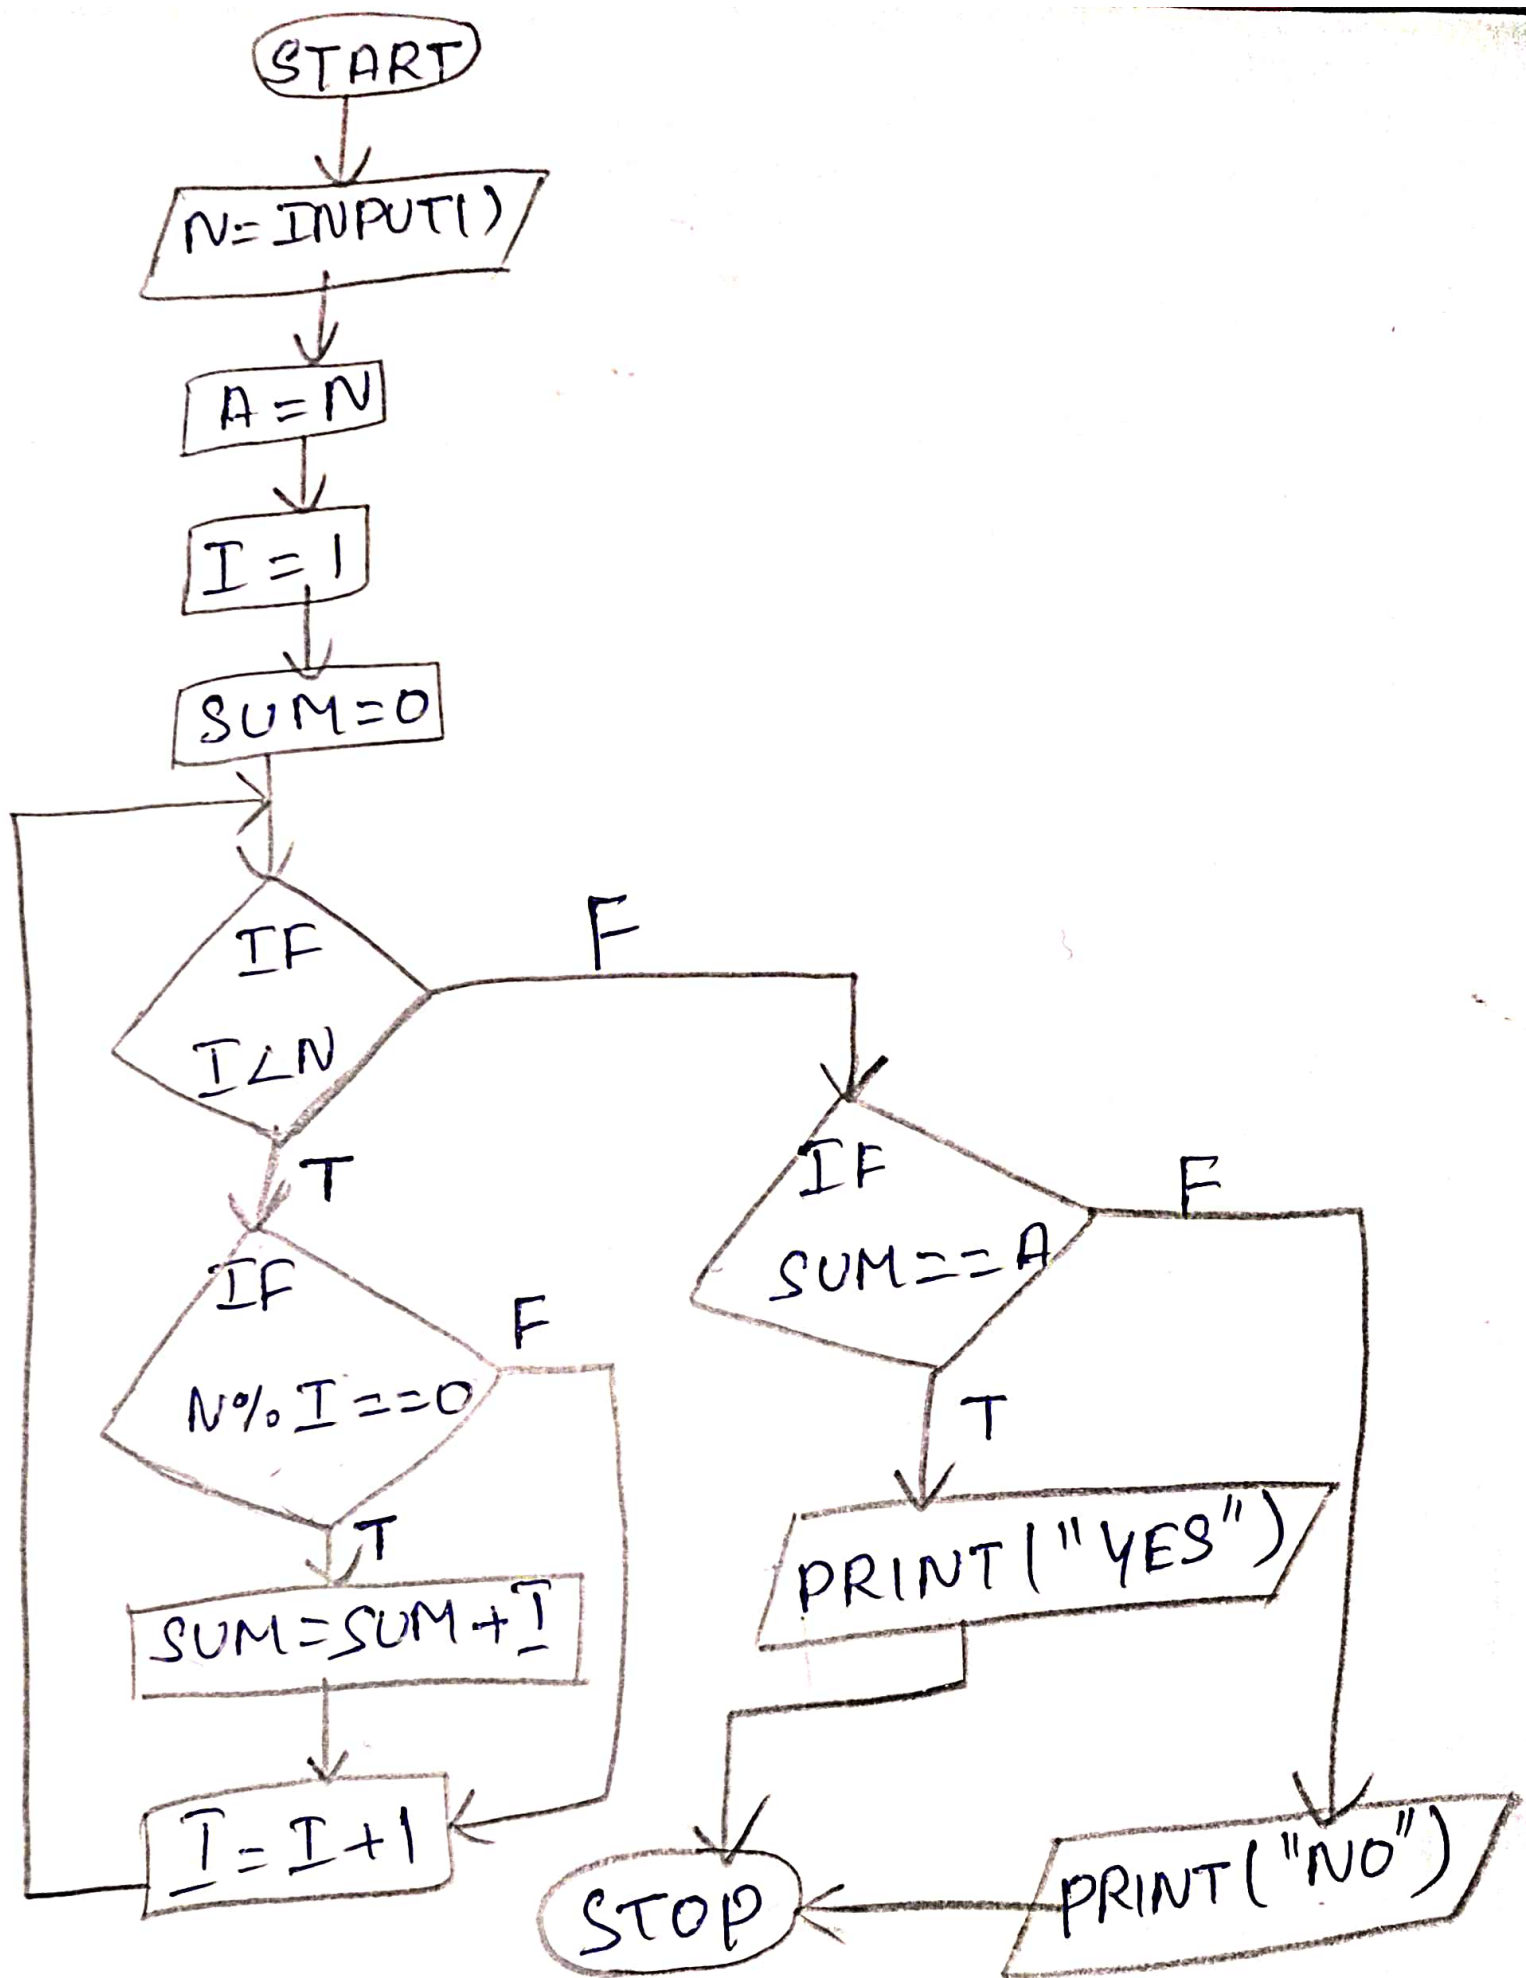 START
N=INPUT()
A=N
I=1
SUM=0
IF
I<N
F
T
IF
N%I==0
F
T
SUM=SUM+I
I=I+1
IF
SUM==A
F
T
PRINT("YES")
PRINT("NO")
STOP